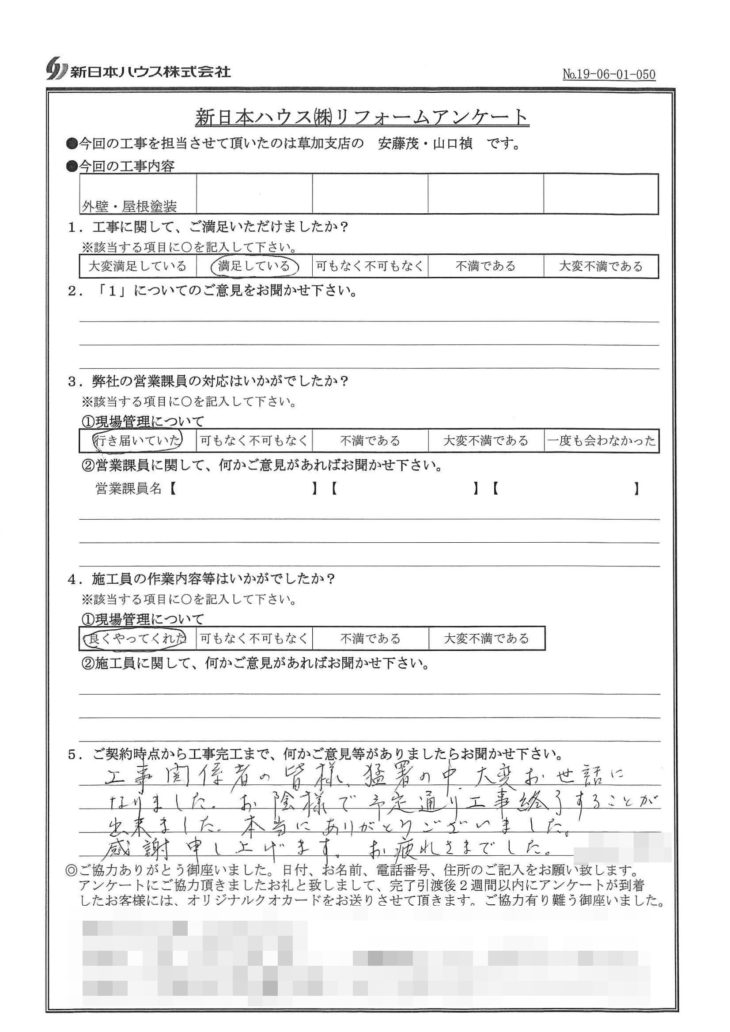 新日本ハウス株式会社
№19-06-01-050
新日本ハウス㈱リフォームアンケート
●今回の工事を担当させて頂いたのは草加支店の 安藤茂・山口禎 です。
●今回の工事内容
外壁・屋根塗装
1．工事に関して、ご満足いただけましたか？
※該当する項目に○を記入して下さい。
大変満足している 満足している 可もなく不可もなく 不満である 大変不満である
2．「1」についてのご意見をお聞かせ下さい。
3．弊社の営業課員の対応はいかがでしたか？
※該当する項目に○を記入して下さい。
①現場管理について
行き届いていた 可もなく不可もなく 不満である 大変不満である 一度も会わなかった
②営業課員に関して、何かご意見があればお聞かせ下さい。
営業課員名【 】【 】【 】
4．施工員の作業内容等はいかがでしたか？
※該当する項目に○を記入して下さい。
①現場管理について
良くやってくれた 可もなく不可もなく 不満である 大変不満である
②施工員に関して、何かご意見があればお聞かせ下さい。
5．ご契約時点から工事完工まで、何かご意見等がありましたらお聞かせ下さい。
工事関係者の皆様、猛署の中、大変お世話に
なりました。お陰様で予定通り工事終了することが
出来ました。本当にありがとうございました。
感謝申し上げます。お疲れさまでした。
◎ご協力ありがとう御座いました。日付、お名前、電話番号、住所のご記入をお願い致します。
アンケートにご協力頂きましたお礼と致しまして、完了引渡後２週間以内にアンケートが到着
したお客様には、オリジナルクオカードをお送りさせて頂きます。ご協力有り難う御座いました。